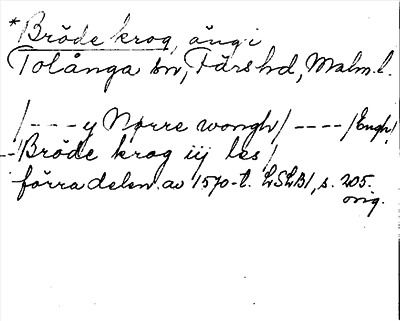 *Bröde krog, äng i
Tolånga sn, Färs hd, Malm. l.
/---y Nørre wongh/----/Engh/
--Bröde krog iij les/
förra delen av 1570-t. LSLB1, s. 205.
orig.